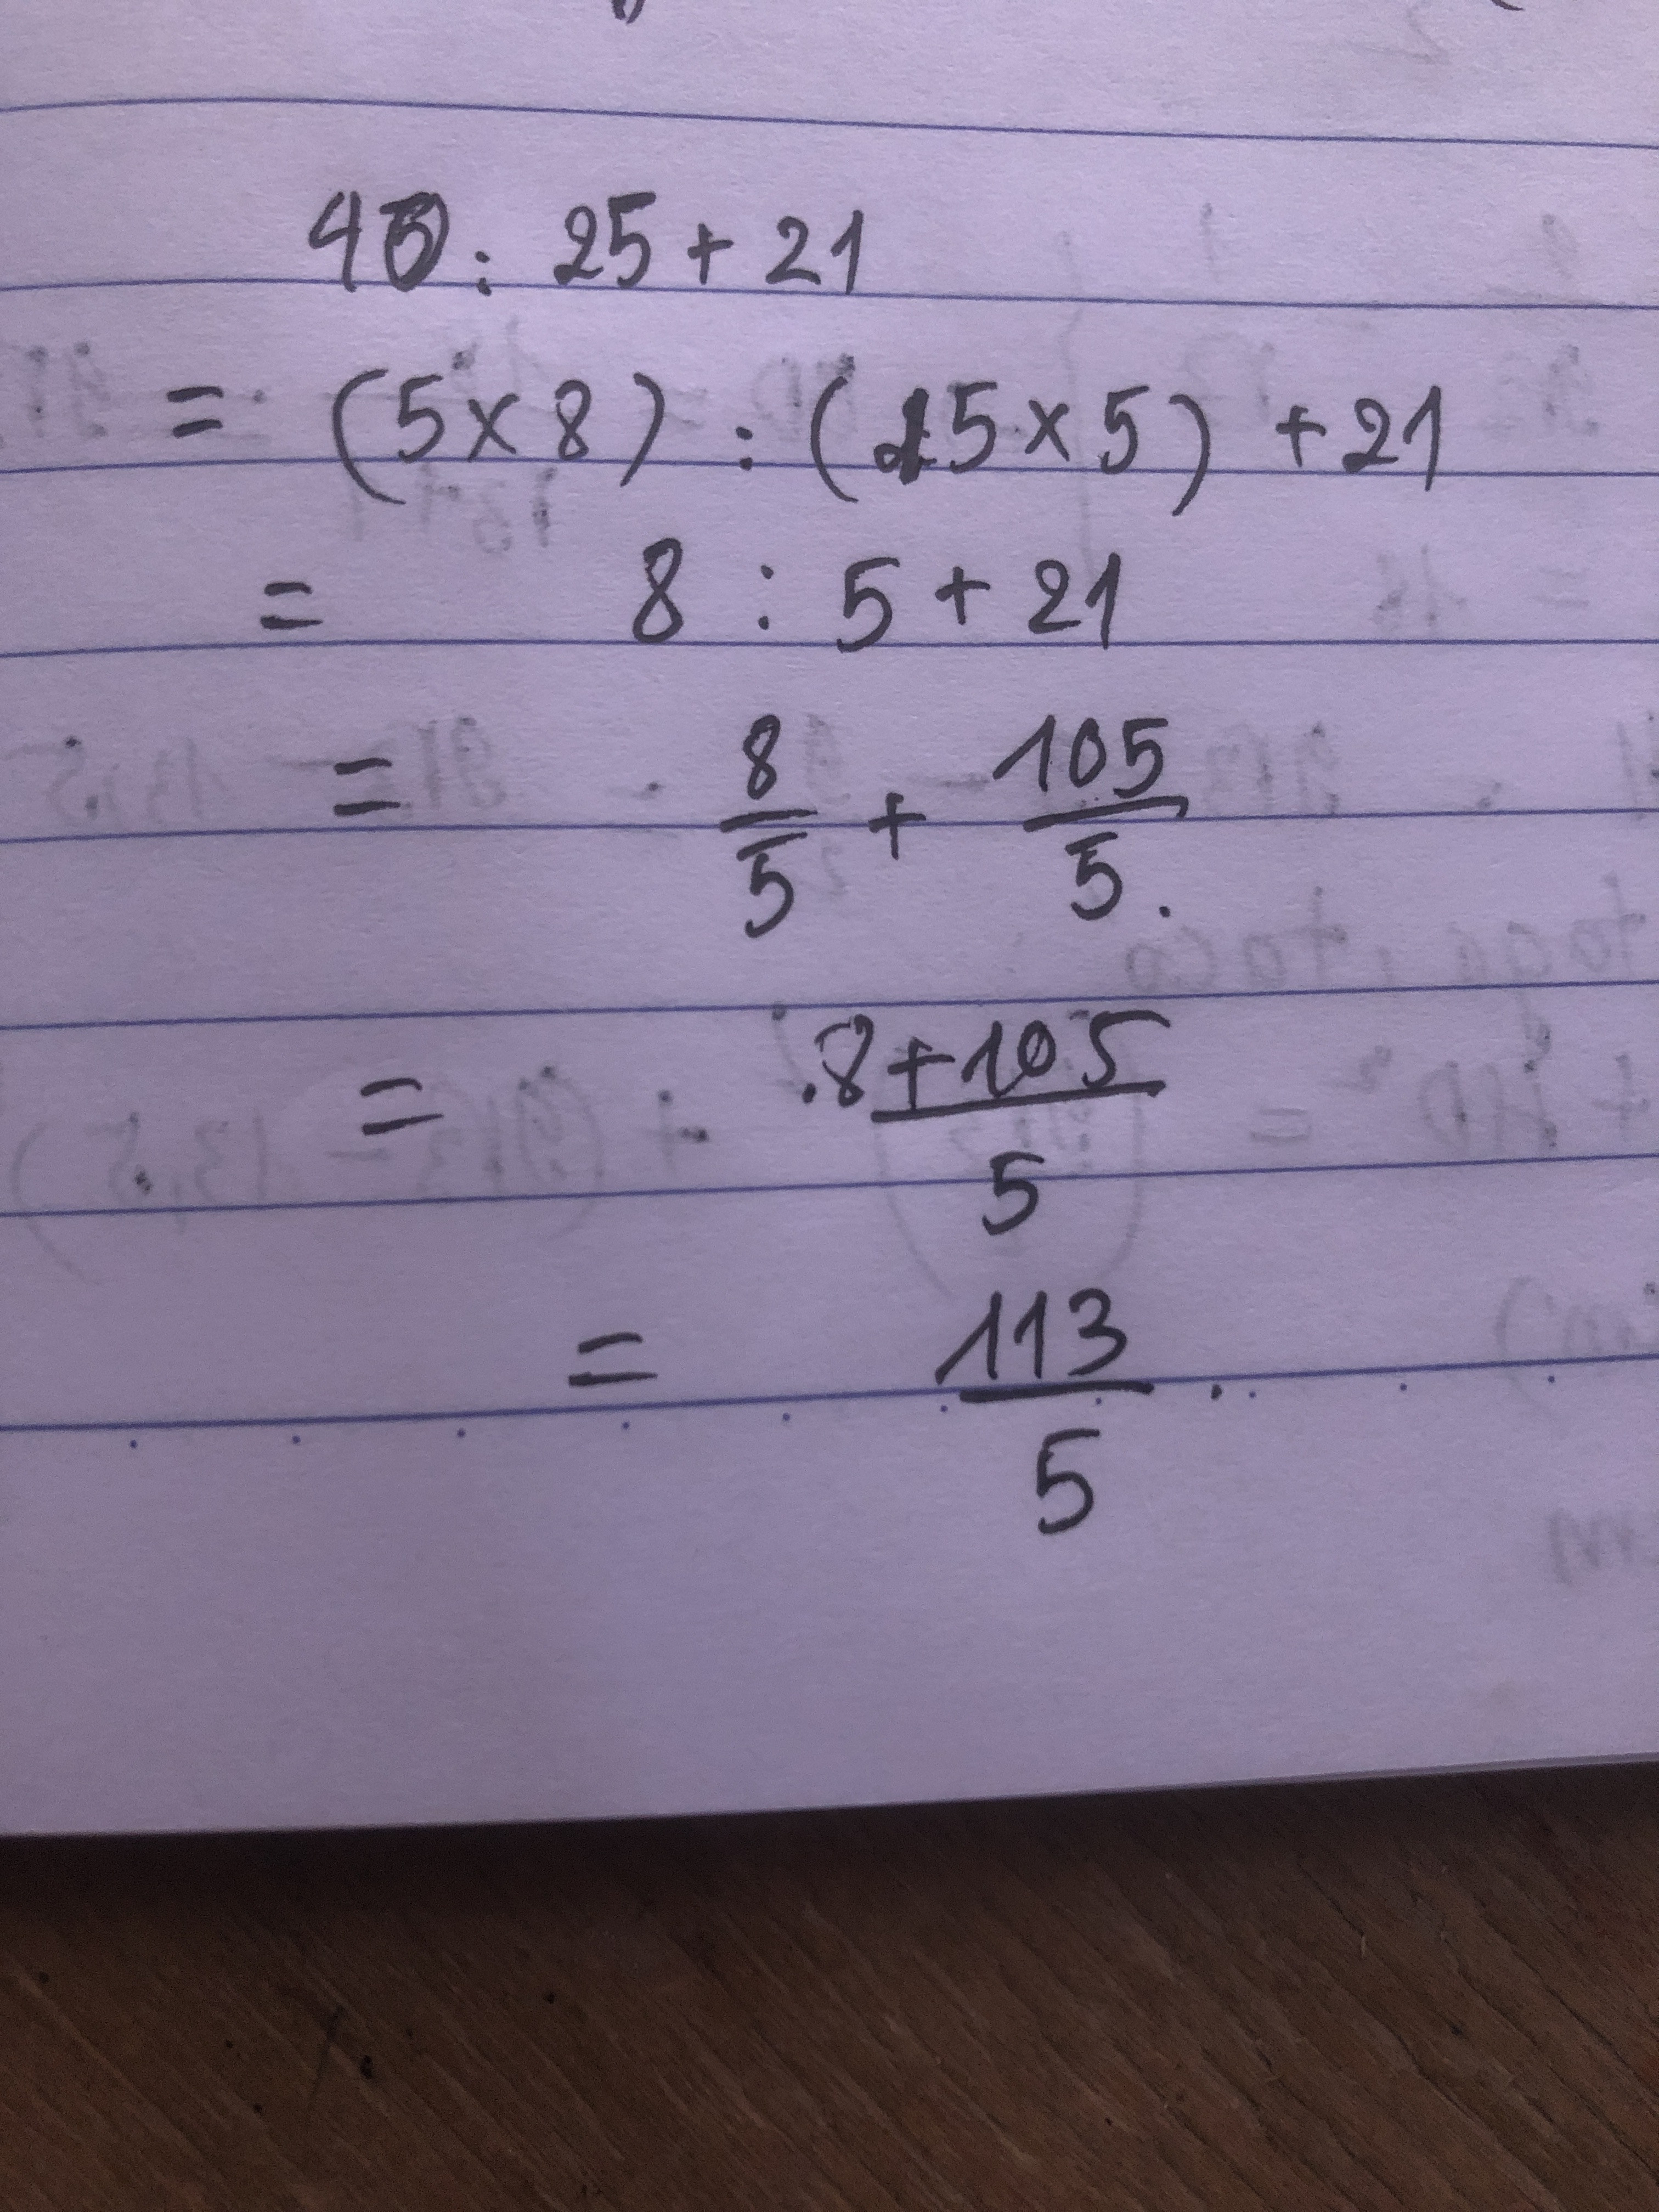 40 : 25 + 21
= (5 x 8) : (5 x 5) + 21
= 8 : 5 + 21
= 8/5 + 105/5.
= 8 + 105 / 5
= 113/5.